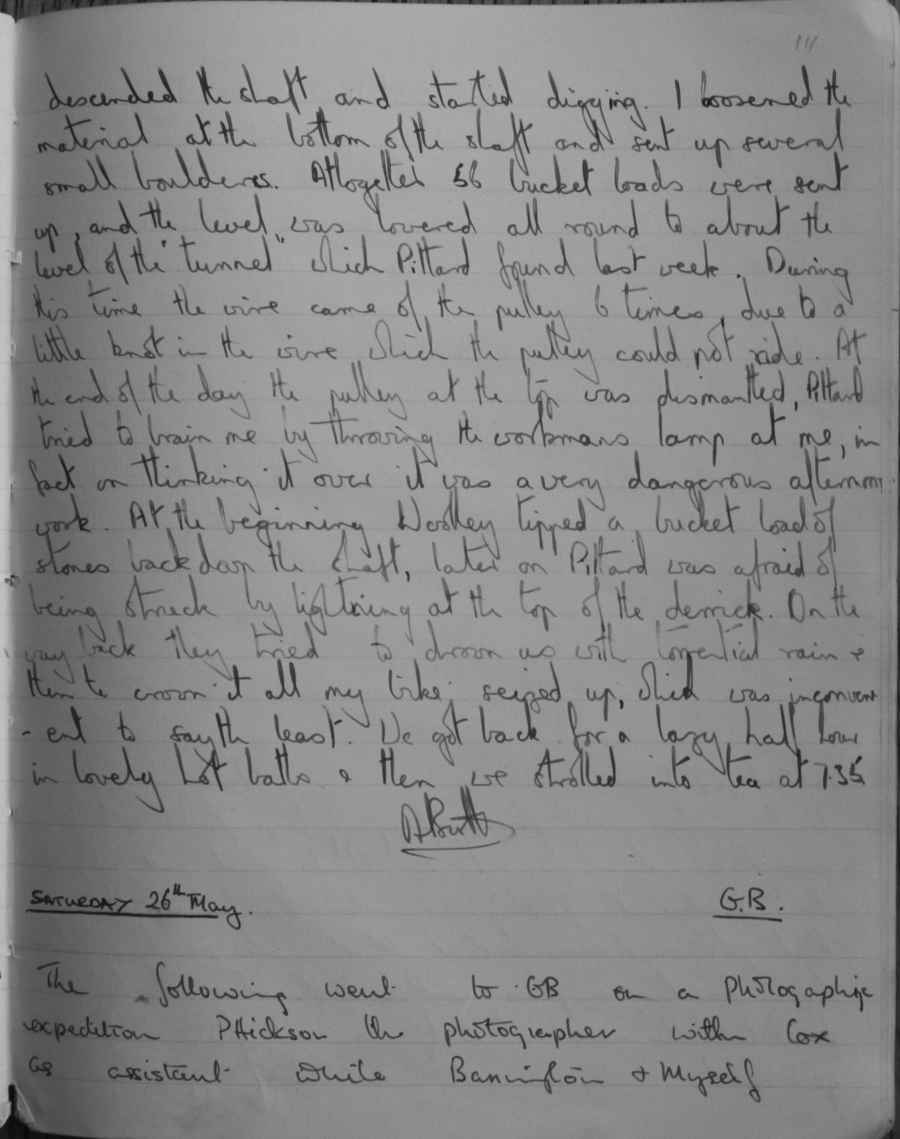 111
descended the shaft and started digging. I loosened the
material at the bottom of the shaft and sent up several
small boulderes. Altogether 56 bucket loads were sent
up, and the level was lowered all round to about the
level of the "tunnel" which Pittard found last week. During
this time the wire came of the pulley 6 times, due to a
little knot in the wire which the pulley could not ride. At
the end of the day the pulley at the top was dismantled, Pittard
tried to brain me by throwing the workmans lamp at me, in
fact on thinking it over it was a very dangerous afternoons
work. At the beginning Woolley tipped a bucket load of
stones back down the shaft, later on Pittard was afraid of
being struck by lightning at the top of the derrick. On the
way back they tried to drown us with torrential rain &
then to crown it all my bike seized up, which was inconveni
-ent to say the least. We got back for a lazy half hour
in lovely hot baths & then we strolled into tea at 7.35
SATURDAY 26th May. G.B.
The following went to GB on a photographic
expedition PHickson the photographer with Cox
as assistant while Bannington + Myself